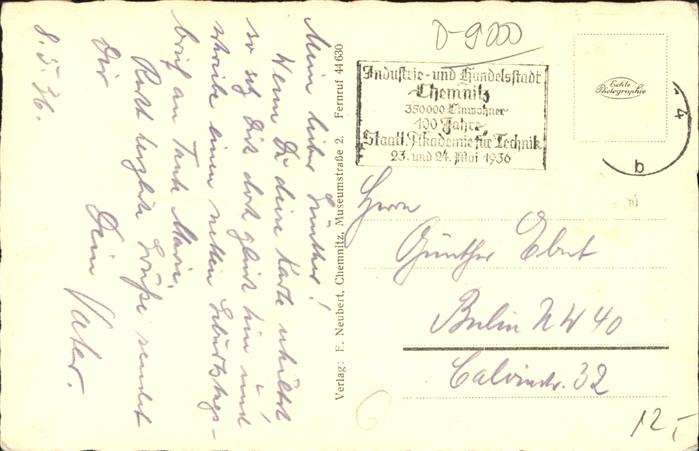 8. 5. 36.
Mein lieber Günther!
Wenn Du diese Karte erhältst
so setz Dich doch gleich hin und
schreibe einen netten Geburtstags-
brief an Tante Marie,
Recht herzliche Grüße sendet
Dir
Dein Vater.
Verlag: F. Neubert, Chemnitz, Museumstraße 2. Fernruf 44630
D-900
Industrie- und Handelsstadt
Chemnitz
350000 Einwohner
100 Jahre
Staatl. Akademie für Technik
23. und 24. Mai 1936
Echte
Photographie
4
b
Herrn
Günther Ebert
Berlin NW 40
Calvinstr. 32
12,-